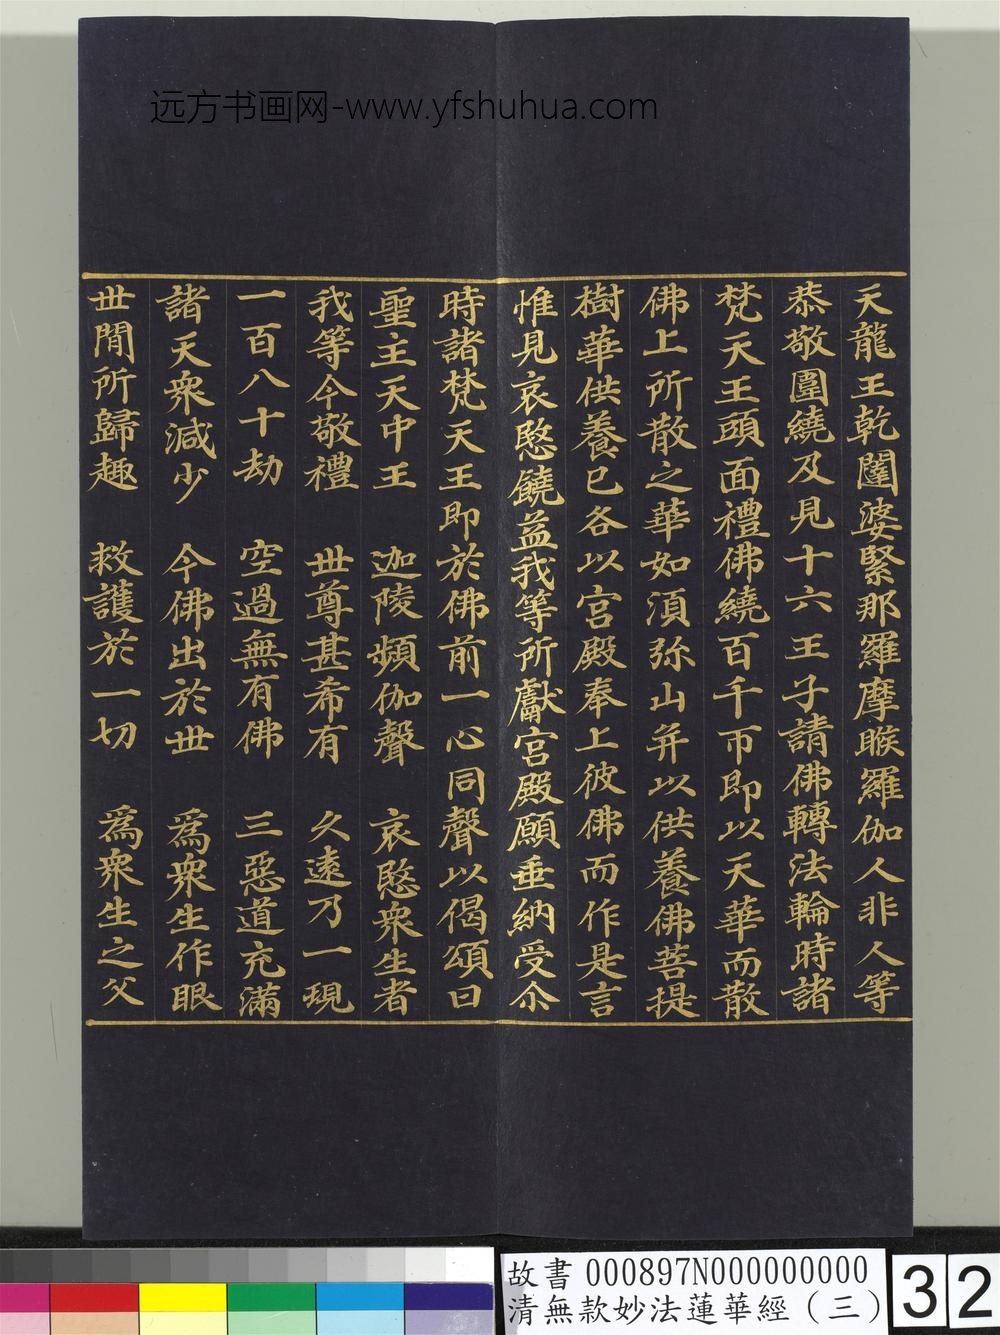 远方书画网-www.yfshuhua.com
天龍王乾闥婆緊那羅摩睺羅伽人非人等
恭敬圍繞及見十六王子請佛轉法輪時諸
梵天王頭面禮佛繞百千帀即以天華而散
佛上所散之華如湏弥山并以供養佛菩提
樹華供養已各以宮殿奉上彼佛而作是言
惟見哀愍饒益我等所獻宮殿願垂納受尒
時諸梵天王即於佛前一心同聲以偈頌曰
聖主天中王 迦陵頻伽聲 哀愍衆生者
我等今敬禮 世尊甚希有 久遠乃一現
一百八十劫 空過無有佛 三惡道充滿
諸天衆減少 今佛出於世 爲衆生作眼
世間所歸趣 救護於一切 爲衆生之父
故書 000897N000000000
清無款妙法蓮華經（三）
32